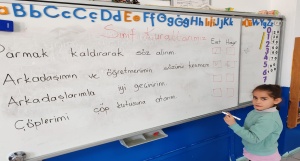 Aa Bb Cc Çç Dd Ee Ff Gg Ğğ Hh Iı İi Jj Kk
Sınıf Kurallarımız
Evet Hayır
Parmak kaldırarak söz alırım
Arkadaşımın ve öğretmenimin sözünü kesmem
Arkadaşlarımla iyi geçinirim
Çöplerimi çöp kutusuna atarım